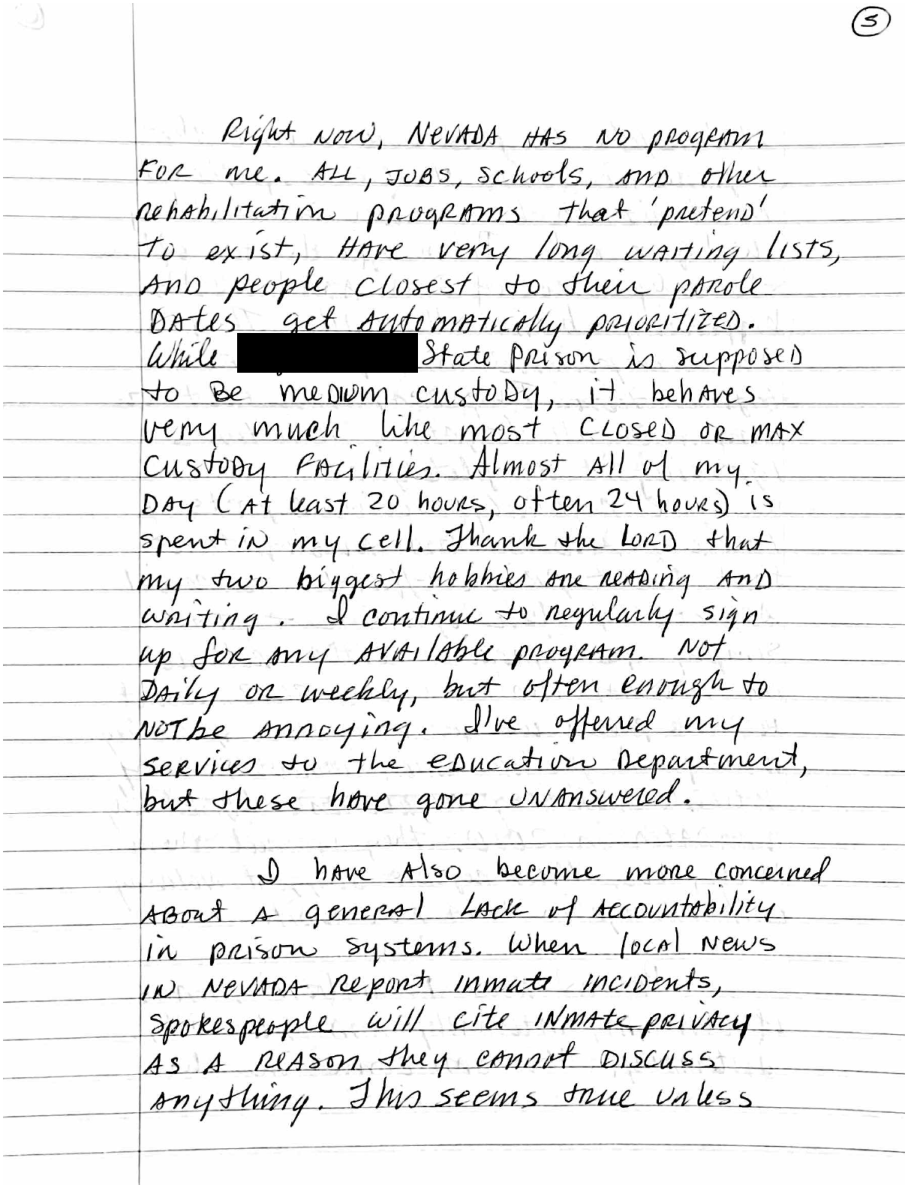 5
Right now, Nevada has no program
for me. All, jobs, schools, and other
rehabilitation programs that 'pretend'
to exist, have very long waiting lists,
and people closest to their parole
dates get automatically prioritized.
While State Prison is supposed
to be medium custody, it behaves
very much like most closed or max
custody facilities. Almost all of my
day (at least 20 hours, often 24 hours) is
spent in my cell. Thank the Lord that
my two biggest hobbies are reading and
writing. I continue to regularly sign
up for any available program. Not
daily or weekly, but often enough to
not be annoying. I've offerred my
services to the education department,
but these have gone unanswered.
I have also become more concerned
about a general lack of accountability
in prison systems. When local news
in Nevada report inmate incidents,
spokespeople will cite inmate privacy
as a reason they cannot discuss
anything. This seems true unless